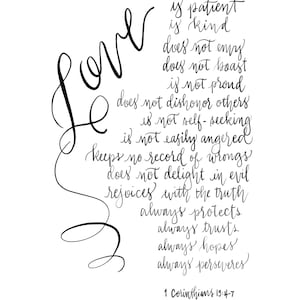 Love
is patient
is kind
does not envy
does not boast
is not proud
does not dishonor others
is not self-seeking
is not easily angered
keeps no record of wrongs
does not delight in evil
rejoices with the truth
always protects
always trusts
always hopes
always perseveres
1 Corinthians 13:4-7